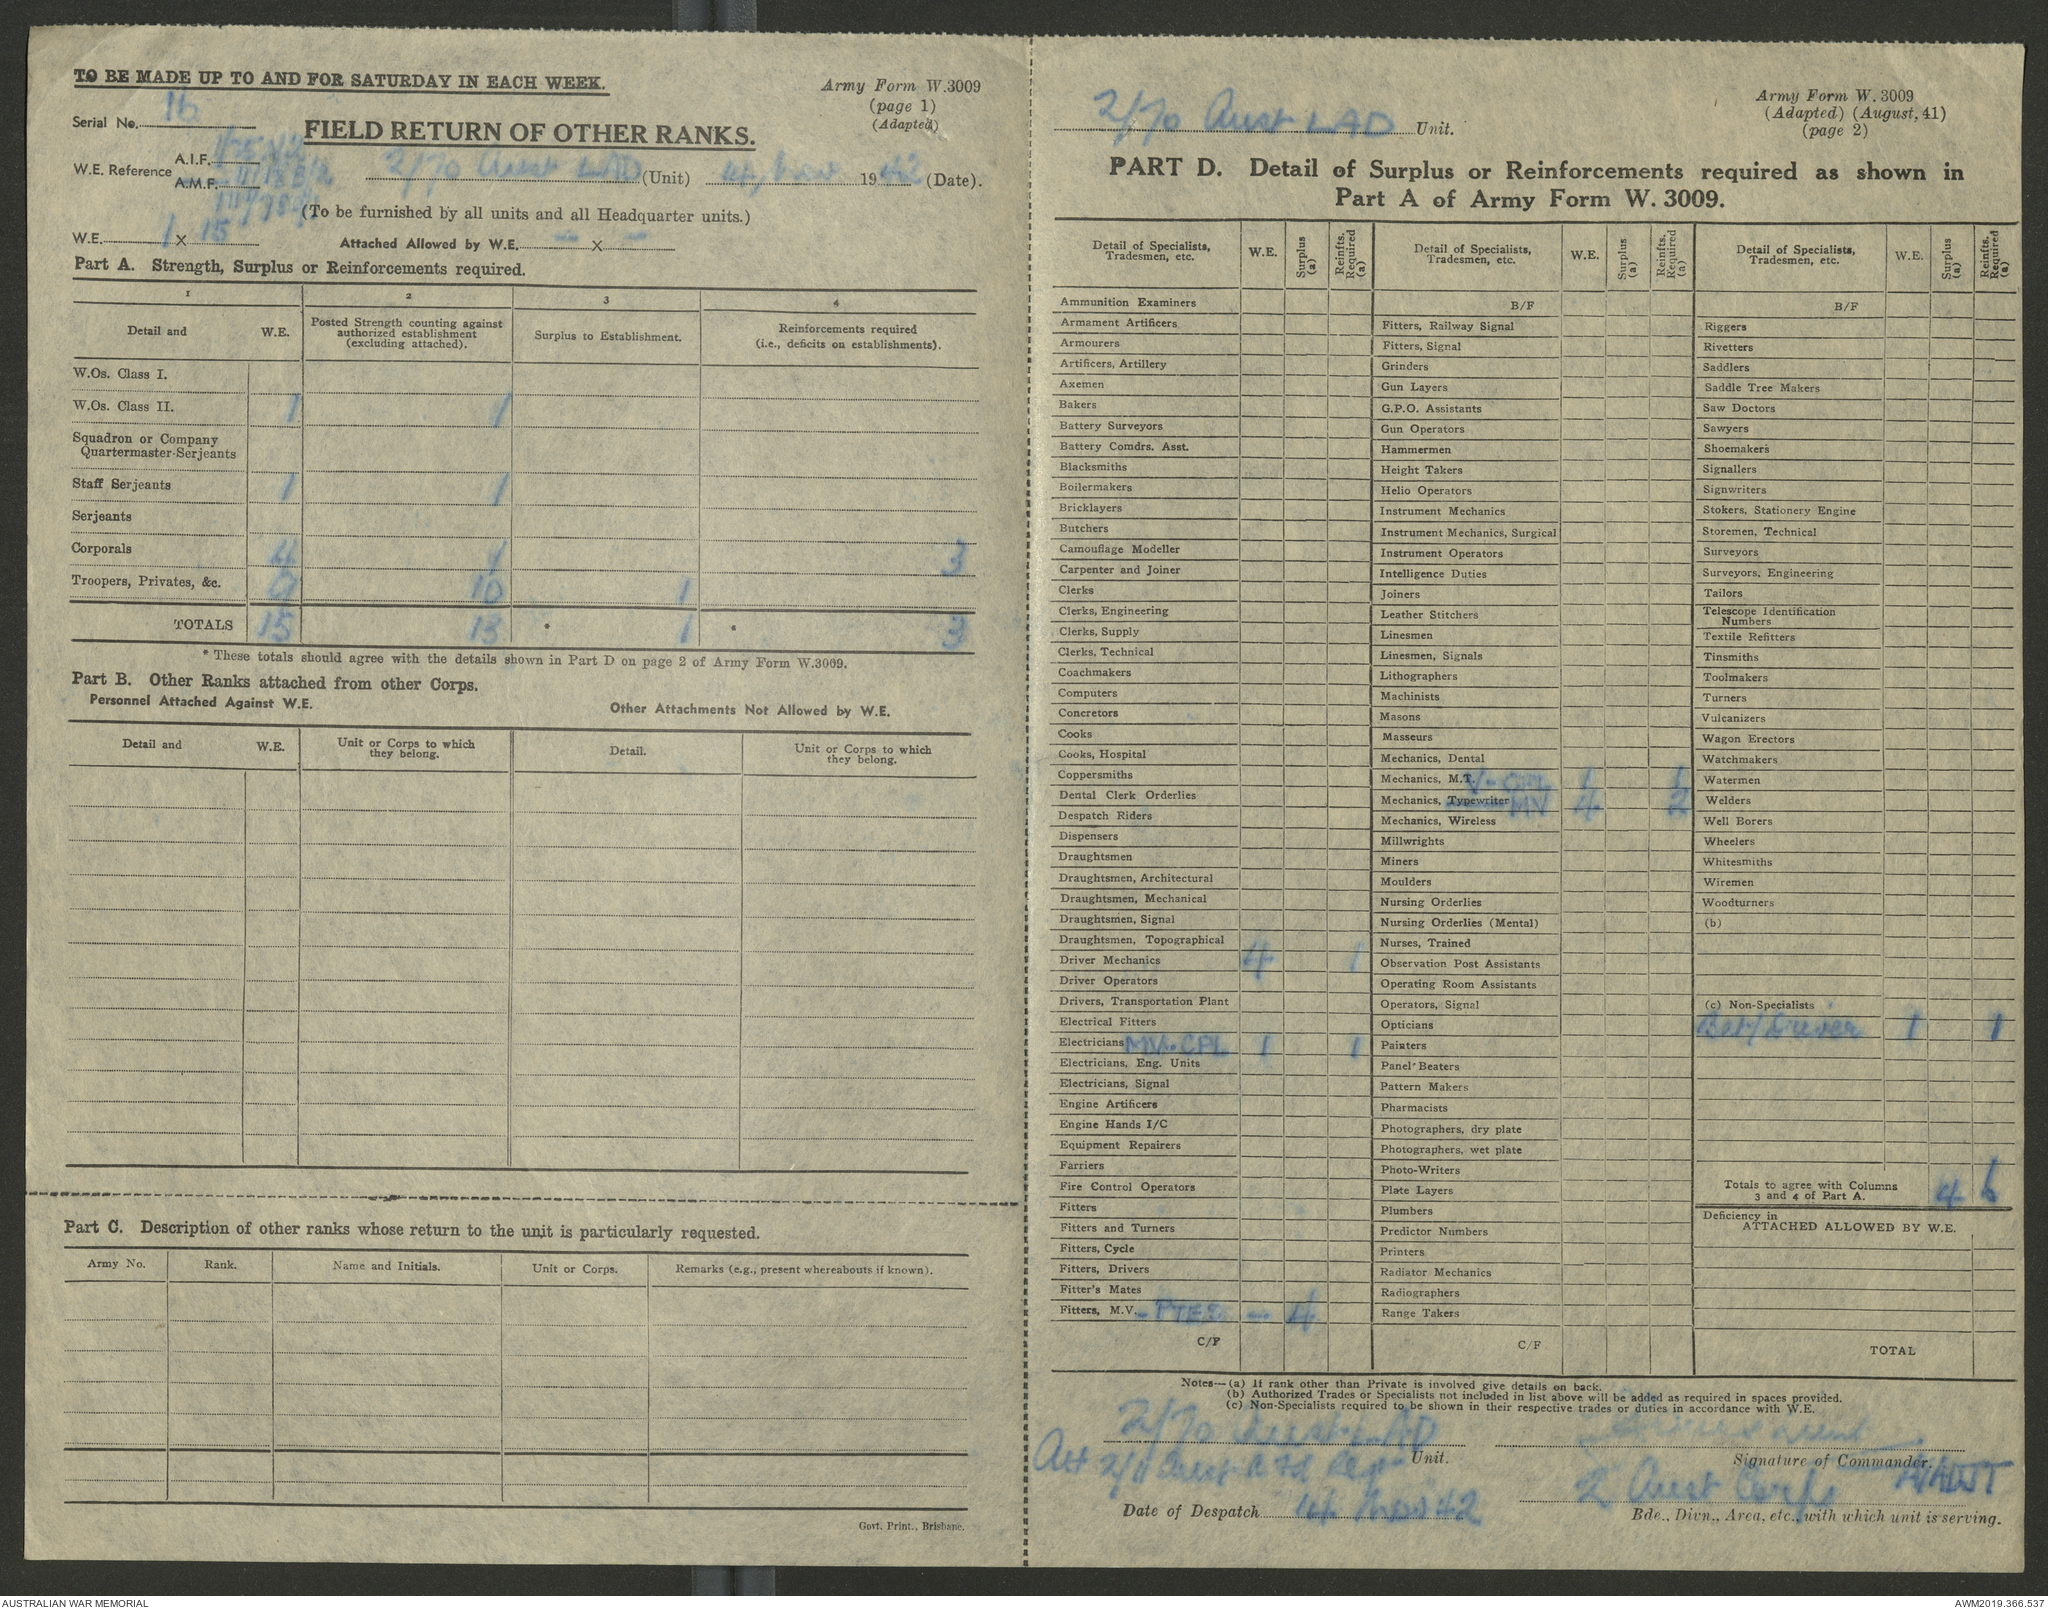 TO BE MADE UP TO AND FOR SATURDAY IN EACH WEEK.
Army Form W.3009
(page 1)
(Adapted)
Serial No. 16
FIELD RETURN OF OTHER RANKS.
W.E. Reference
A.I.F.
A.M.F.
2/70 Aust LAD (Unit) 14 Nov 1942 (Date).
(To be furnished by all units and all Headquarter units.)
W.E. 1 X 15
Attached Allowed by W.E. — X —
Part A. Strength, Surplus or Reinforcements required.
1 2 3 4
Detail and W.E. Posted Strength counting against authorized establishment (excluding attached). Surplus to Establishment. Reinforcements required (i.e., deficits on establishments).
W.Os. Class I.
W.Os. Class II. 1 1
Squadron or Company
Quartermaster-Serjeants
Staff Serjeants 1 1
Serjeants
Corporals 4 1 3
Troopers, Privates, &c. 9 10 1
TOTALS 15 13 * 1 * 3
* These totals should agree with the details shown in Part D on page 2 of Army Form W.3009.
Part B. Other Ranks attached from other Corps.
Personnel Attached Against W.E.
Other Attachments Not Allowed by W.E.
Detail and W.E. Unit or Corps to which they belong. Detail. Unit or Corps to which they belong.
Part C. Description of other ranks whose return to the unit is particularly requested.
Army No. Rank. Name and Initials. Unit or Corps. Remarks (e.g., present whereabouts if known).
Govt. Print., Brisbane.
2/70 Aust LAD Unit.
Army Form W. 3009
(Adapted) (August, 41)
(page 2)
PART D. Detail of Surplus or Reinforcements required as shown in
Part A of Army Form W. 3009.
Detail of Specialists, Tradesmen, etc. W.E. Surplus (a) Reinfts. Required (a)
Ammunition Examiners
Armament Artificers
Armourers
Artificers, Artillery
Axemen
Bakers
Battery Surveyors
Battery Comdrs. Asst.
Blacksmiths
Boilermakers
Bricklayers
Butchers
Camouflage Modeller
Carpenter and Joiner
Clerks
Clerks, Engineering
Clerks, Supply
Clerks, Technical
Coachmakers
Computers
Concretors
Cooks
Cooks, Hospital
Coppersmiths
Dental Clerk Orderlies
Despatch Riders
Dispensers
Draughtsmen
Draughtsmen, Architectural
Draughtsmen, Mechanical
Draughtsmen, Signal
Draughtsmen, Topographical
Driver Mechanics 4 1
Driver Operators
Drivers, Transportation Plant
Electrical Fitters
Electricians MV. CPL 1 1
Electricians, Eng. Units
Electricians, Signal
Engine Artificers
Engine Hands I/C
Equipment Repairers
Farriers
Fire Control Operators
Fitters
Fitters and Turners
Fitters, Cycle
Fitters, Drivers
Fitter's Mates
Fitters, M.V. - PTES. — 4
C/F
Detail of Specialists, Tradesmen, etc. W.E. Surplus (a) Reinfts. Required (a)
B/F
Fitters, Railway Signal
Fitters, Signal
Grinders
Gun Layers
G.P.O. Assistants
Gun Operators
Hammermen
Height Takers
Helio Operators
Instrument Mechanics
Instrument Mechanics, Surgical
Instrument Operators
Intelligence Duties
Joiners
Leather Stitchers
Linesmen
Linesmen, Signals
Lithographers
Machinists
Masons
Masseurs
Mechanics, Dental
Mechanics, M.T. V-CPL 1 1
Mechanics, Typewriter MV 4 2
Mechanics, Wireless
Millwrights
Miners
Moulders
Nursing Orderlies
Nursing Orderlies (Mental)
Nurses, Trained
Observation Post Assistants
Operating Room Assistants
Operators, Signal
Opticians
Painters
Panel Beaters
Pattern Makers
Pharmacists
Photographers, dry plate
Photographers, wet plate
Photo-Writers
Plate Layers
Plumbers
Predictor Numbers
Printers
Radiator Mechanics
Radiographers
Range Takers
C/F
Detail of Specialists, Tradesmen, etc. W.E. Surplus (a) Reinfts. Required (a)
B/F
Riggers
Rivetters
Saddlers
Saddle Tree Makers
Saw Doctors
Sawyers
Shoemakers
Signallers
Signwriters
Stokers, Stationery Engine
Storemen, Technical
Surveyors
Surveyors, Engineering
Tailors
Telescope Identification
Numbers
Textile Refitters
Tinsmiths
Toolmakers
Turners
Vulcanizers
Wagon Erectors
Watchmakers
Watermen
Welders
Well Borers
Wheelers
Whitesmiths
Wiremen
Woodturners
(b)
(c) Non-Specialists
Bat/Driver 1 1
Totals to agree with Columns
3 and 4 of Part A. 4 6
Deficiency in
ATTACHED ALLOWED BY W.E.
TOTAL
Notes—(a) If rank other than Private is involved give details on back.
(b) Authorized Trades or Specialists not included in list above will be added as required in spaces provided.
(c) Non-Specialists required to be shown in their respective trades or duties in accordance with W.E.
2/70 Aust. LAD
Unit.
Att 2/11 Aust A Fd Regt
Signature of Commander.
2 Aust Corps
Date of Despatch 14 Nov 42
Bde., Divn., Area, etc., with which unit is serving.
AUSTRALIAN WAR MEMORIAL
AWM2019.366.537